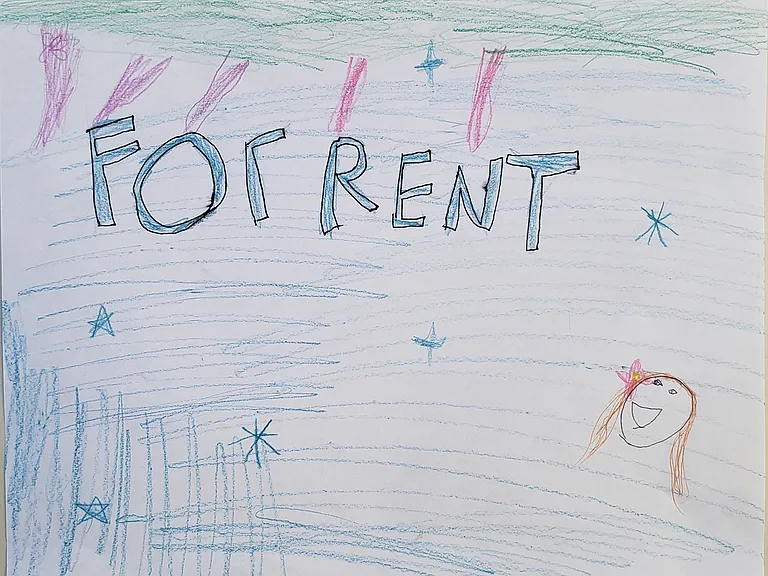 FOr RENT